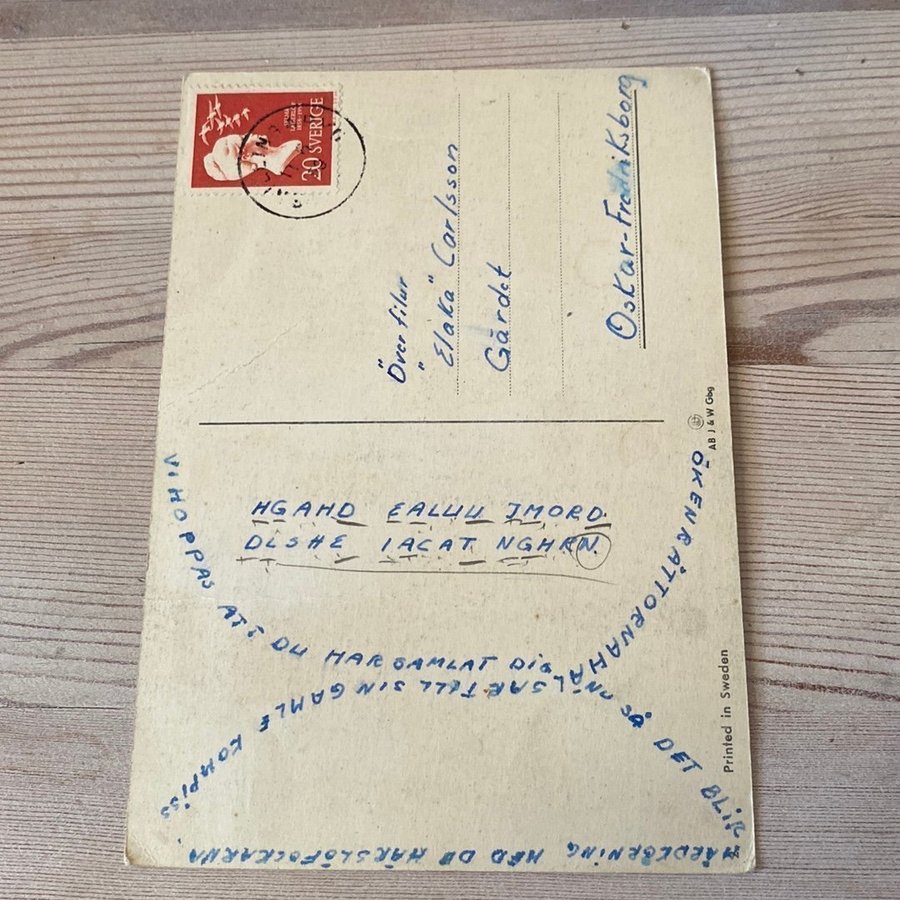 20 SVERIGE
SELMA
LAGERLÖF
"Över filur
"Elaka" Carlsson
Gärdet
Oskar-Fredriksborg
AB J & W Gbg
HGAHD EALUU JMORD
DLSHE IACAT NGHRN
VI HOPPAS ATT DU HAR SAMLAT DIG
SÅ DET BLIR
HÅRDKÖRNING MED DU HÅRSLÖFOCKARNA.
ÖKENRÅTTORNA HÄLSAR TILL SIN GAMLE KOMPISS
Printed in Sweden